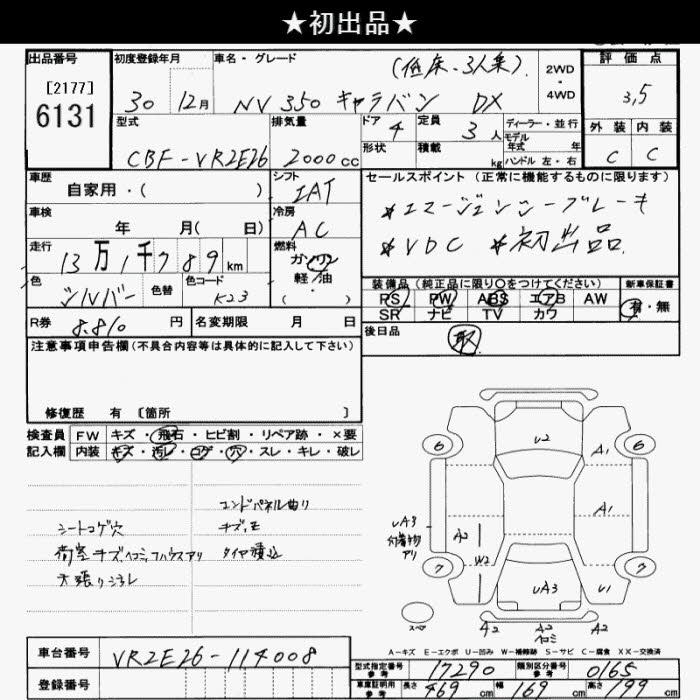 ★初出品★
出品番号 初度登録年月 車名・グレード (低床・3人乗) 2WD・4WD 評価点
[2177]
6131 30 12月 NV350 キャラバン DX 3,5
型式 排気量 ドア 4 定員 3人 ディーラー・並行 外装 内装
モデル年式 年
CBF-VR2E26 2000cc 形状 積載 kg ハンドル 左・右 C C
車歴 シフト セールスポイント (正常に機能するものに限ります)
自家用・( ) IAT *エマージェンシーブレーキ
車検 年 月( 日) 冷房 AC *VDC *初出品
走行 13万1千789km 燃料 ガソリン 軽油・( )
色 シルバー 色替 色コード K23
装備品 (純正品に限り○をつけてください) 新車保証書
PS PW ABS エアB AW 有・無
SR ナビ TV カワ
R券 8.810円 名変期限 月 日 後日品 取
注意事項申告欄(不具合内容等は具体的に記入して下さい)
修復歴 有 〔箇所 〕
検査員 FW キズ・飛石・ヒビ割・リペア跡・×要
記入欄 内装 キズ・汚レ・コゲ・穴・スレ・キレ・破レ
コンドパネル曲り
シートコゲ穴 キズ、モ
荷室キズ、ヘコミ、フハウスアリ タイヤ積込
天張りシミ
6 U2 A1 6
UA3 付着物アリ A2 A1
W2
7 UA3 U1 7
スペア A2 A2 ヘコミ A2
A-キズ E-エクボ U-凹み W-補修跡 S-サビ C-腐食 XX-交換済
車台番号 VR2E26-114008
型式指定番号 参考 17290 類別区分番号 参考 0165
登録番号
車庫証明用 参考 長さ 469cm 幅 169cm 高さ 199cm